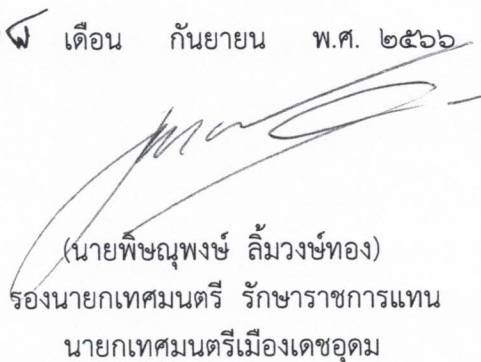 เดือน กันยายน พ.ศ. ๒๕๖๖
(นายพิษณุพงษ์ ลิ้มวงษ์ทอง)
รองนายกเทศมนตรี รักษาราชการแทน
นายกเทศมนตรีเมืองเดชอุดม